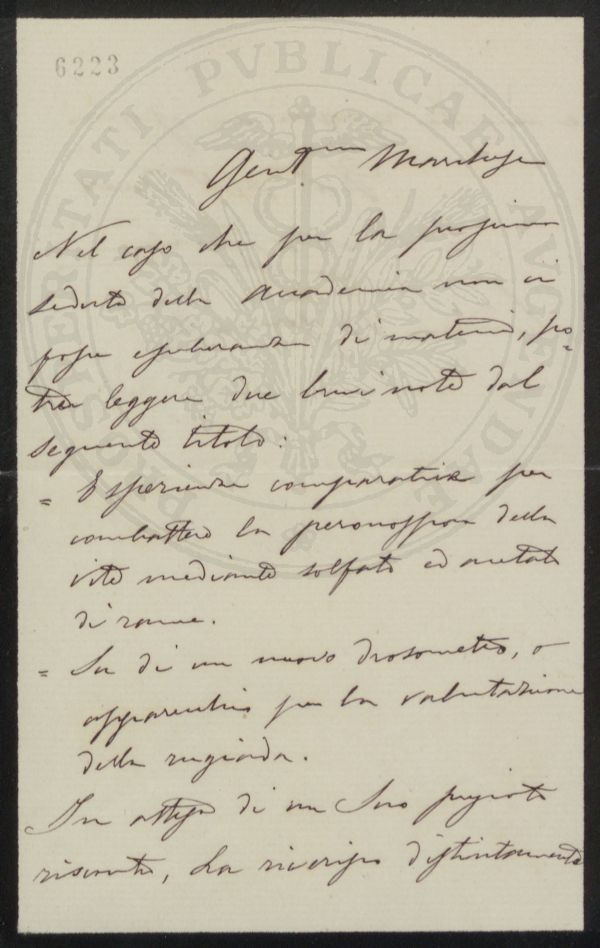 6223
PROSPERITATI PVBLICAE AVGENDAE
Gent.mo Marchese
Nel caso che per la prossima
seduta della Accademia non ci
fosse esuberanza di materia, po=
trei leggere due brevi note dal
seguente titolo:
= Esperienze comparative per
combattere la peronospora della
vite mediante solfato ed acetato
di rame.
= Su di un nuovo drosometro, o
apparecchio per la valutazione
della rugiada.
In attesa di un Suo pregiato
riscontro, La riverisco distintamente